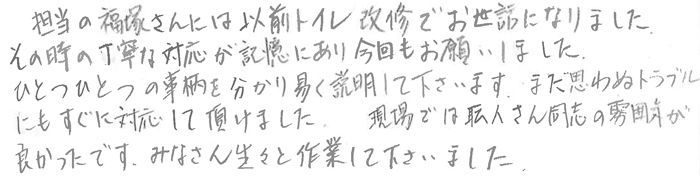 担当の福塚さんには以前トイレ改修でお世話になりました。
その時の丁寧な対応が記憶にあり今回もお願いしました。
ひとつひとつの事柄を分かり易く説明して下さいます。また思わぬトラブル
にもすぐに対応して頂けました。 現場では職人さん同志の雰囲気が
良かったです。みなさん生々と作業して下さいました。